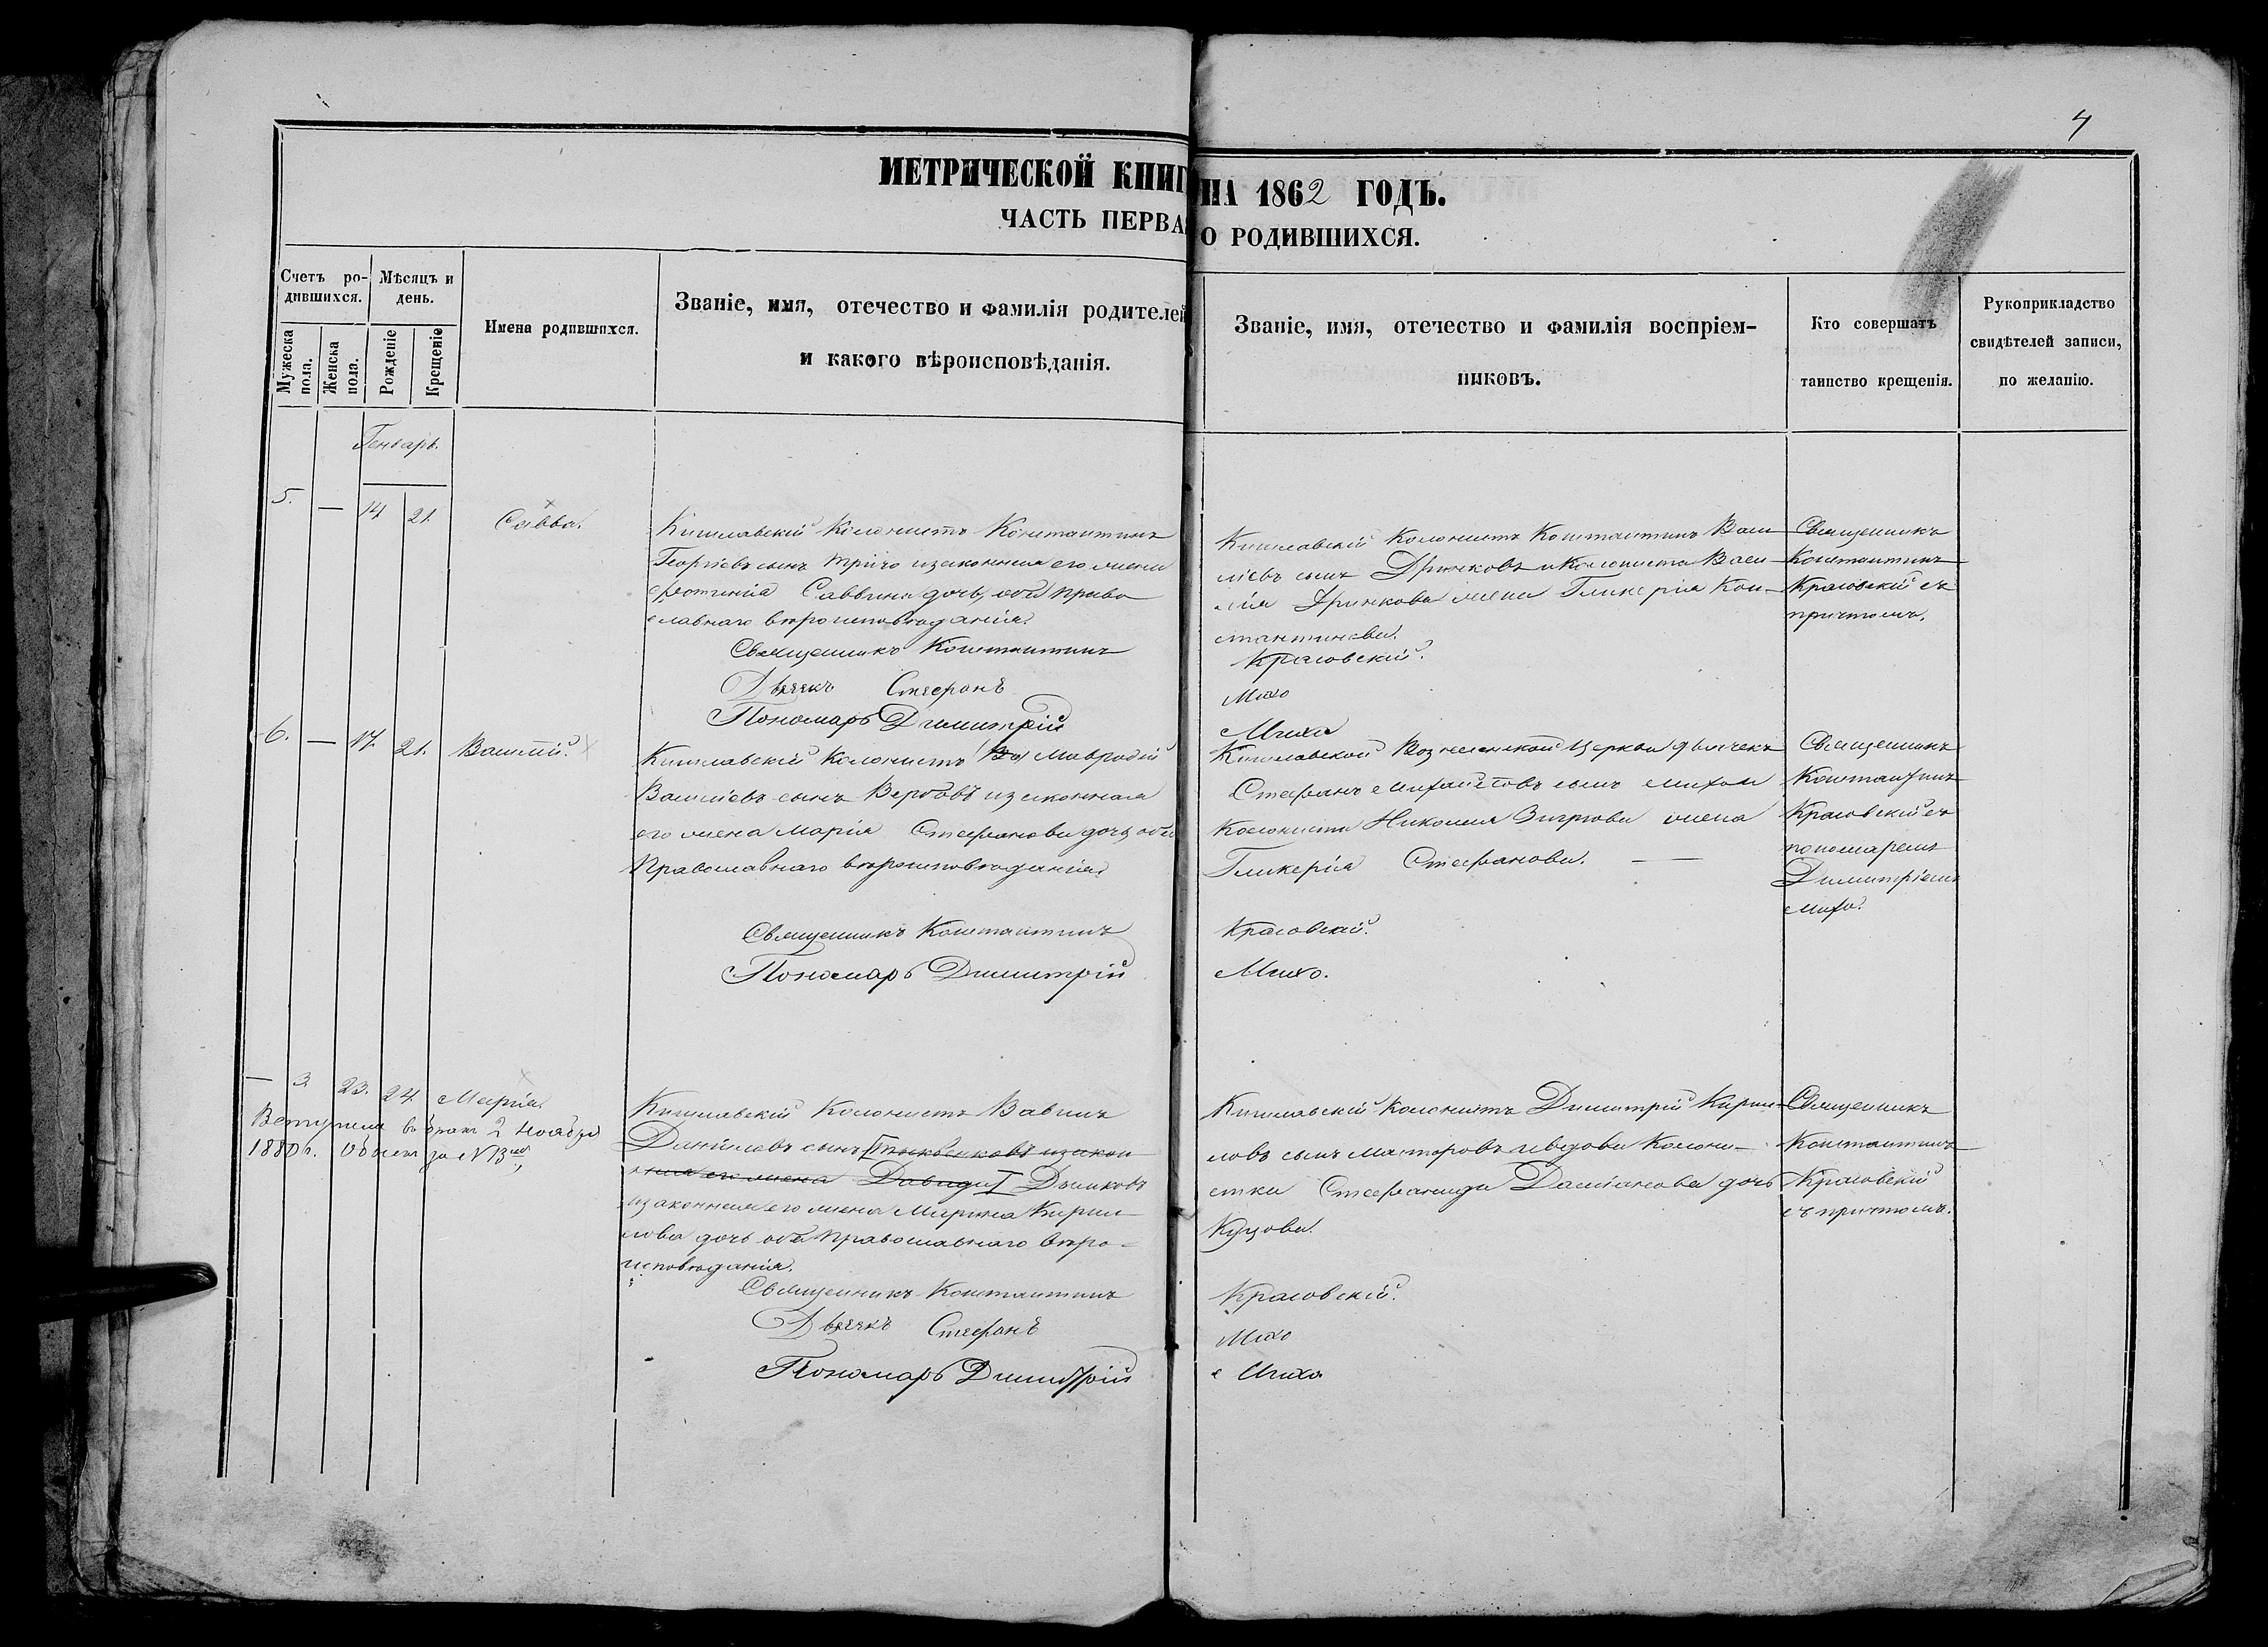 4
МЕТРИЧЕСКОЙ КНИГ НА 1862 ГОДЪ.
ЧАСТЬ ПЕРВА О РОДИВШИХСЯ.
Счетъ ро-
дившихся.
Мужеска пола.
Женска пола.
Мѣсяцъ и
день.
Рожденіе
Крещеніе
Имена родившихся.
Званіе, имя, отечество и фамилія родителей
и какого вѣроисповѣданія.
Званіе, имя, отечество и фамилія воспріем-
никовъ.
Кто совершатъ
таинство крещенія.
Рукоприкладство
свидѣтелей записи,
по желанію.
Генварь.
5. — 14 21. Савва.
Кишлавскій Колонистъ Константинъ
Георгіевъ сынъ изаконная его жена
Саввина дочь, оба право
славнаго вѣроисповѣданія.
Священникъ Константинъ
Дьячекъ Стефанъ
Пономарь Димитрій
Кишлавскій Колонистъ Константинъ Васи
ліевъ сынъ Дринковъ и Колониста Васи
лія Дринкова жена Гликерія Кон-
стантинова.
Красовскій.
Михо
Михо
Священникъ
Константинъ
Красовскій съ
причтомъ.
6. — 17. 21. Василій.
Кишлавскій Колонистъ Мавродій
Василіевъ сынъ изаконная
его жена Марія Стефанова дочь, оба
Православнаго вѣроисповѣданія.
Священникъ Константинъ
Пономарь Димитрій
Кишлавской Вознесенской Церкви дьячекъ
Стефанъ сынъ Михо и
Колониста Николая жена
Гликерія Стефанова. — —
Красовскій.
Михо.
Священникъ
Константинъ
Красовскій съ
пономаремъ
Димитріемъ
Михо.
— 3 23. 24. Марія.
Вступила въ бракъ 2 Ноября
1880 г.
Кишлавскій Колонистъ
Даниловъ сынъ изакон
ная его жена
изаконная его жена Марина Кирил
лова дочь оба Православнаго вѣро-
исповѣданія.
Священникъ Константинъ
Дьячекъ Стефанъ
Пономарь Димитрій
Кишлавскій Колонистъ Димитрій Кирил
ловъ сынъ и вдова Колони-
стка Стефанида Даміанова дочь
Красовскій.
Михо
Михо
Священникъ
Константинъ
Красовскій
съ причтомъ.